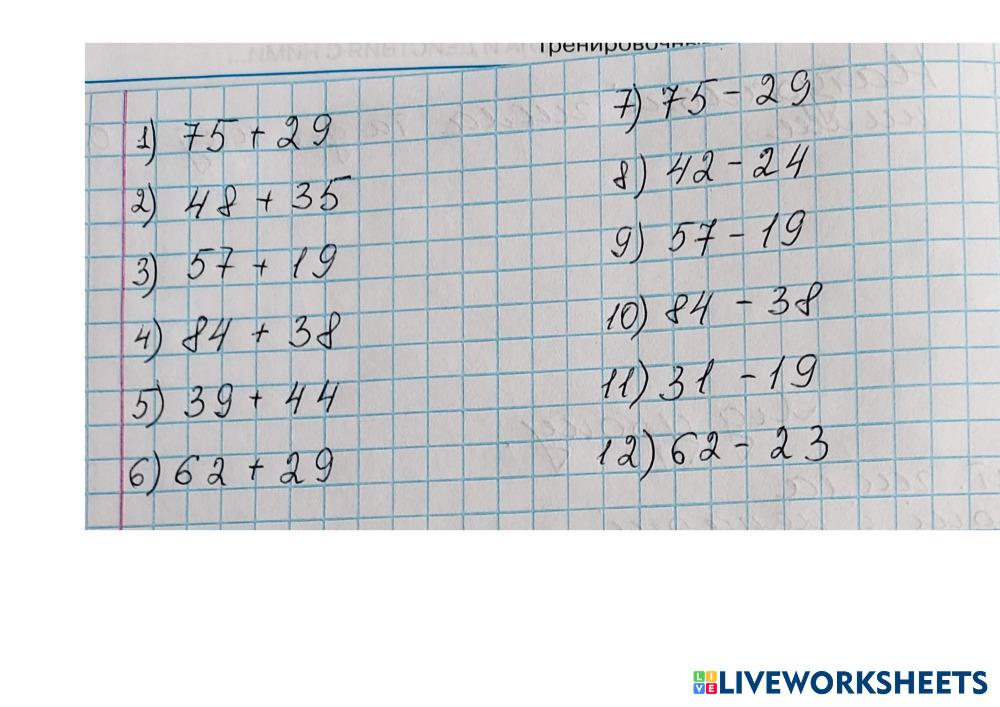 тренировочн
1) 75 + 29
2) 48 + 35
3) 57 + 19
4) 84 + 38
5) 39 + 44
6) 62 + 29
7) 75 - 29
8) 42 - 24
9) 57 - 19
10) 84 - 38
11) 31 - 19
12) 62 - 23
LIVEWORKSHEETS